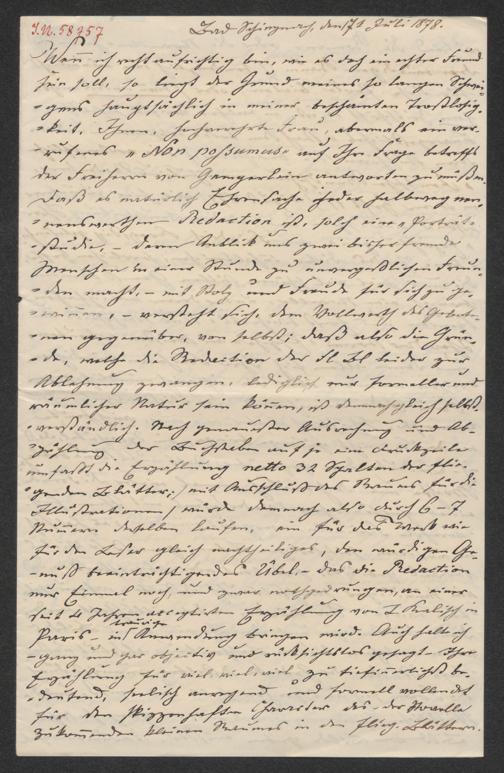 I.N. 58757
Bad Schinznach, den 7t Juli 1878.
Wenn ich recht aufrichtig bin, wie es doch ein echter Freund
sein soll, so liegt der Grund meines so langen Schwei-
gens hauptsächlich in meiner beschämten Trostlosig-
keit, Ihnen, hochverehrte Frau, abermals ein ver-
rufenes "Non possumus" auf Ihre Frage betreffs
der Freiherrn von Gemperlein antworten zu müssen.
Daß es natürlich Ehrensache jeder halbweg nen-
nenswerthen Redaction ist, solch eine "Porträt-
studie, – deren Anblick uns zwei bisher fremde
Menschen in einer Stunde zu unvergeßlichen Freun-
den macht, – mit Stolz und Freude für sich zu ge-
winnen, – versteht sich, dem Vollwerth des Gebote-
nen gegenüber, von selbst; daß also die Grün-
de, welche die Redaction der Fl Bl leider zur
Ablehnung zwangen, lediglich nur formeller und
räumlicher Natur sein können, ist demnach gleich selbst-
verständlich. Nach genauester Ausrechnung und Ab-
zählung der Buchstaben auf je eine Druckzeile
umfaßt die Erzählung netto 32 Spalten der flie-
genden Blätter; / mit Ausschluß des Raumes für die
Illustrationen / würde demnach also durch 6–7
Nummern derselben laufen, ein für das Werk wie
für den Leser gleich nachtheiliges, den würdigen Ge-
nuß beeinträchtigendes Übel, – das die Redaction
nur Einmal noch, und zwar nothgedrungen, an einer
seit 4 Jahren acceptirten Erzählung von I. Kalisch in
Paris – in Anwendung bringen wird. Auch halte ich
– ganz und gar objectiv und rücksichtslos gesagt – Ihre
Erzählung für viel, viel, viel zu tiefinnerlich be-
deutend, seelisch anregend und formell vollendet
für den skizzenhaften Charakter des – der Novelle
zukommenden kleinen Raumes in den flieg. Blättern.